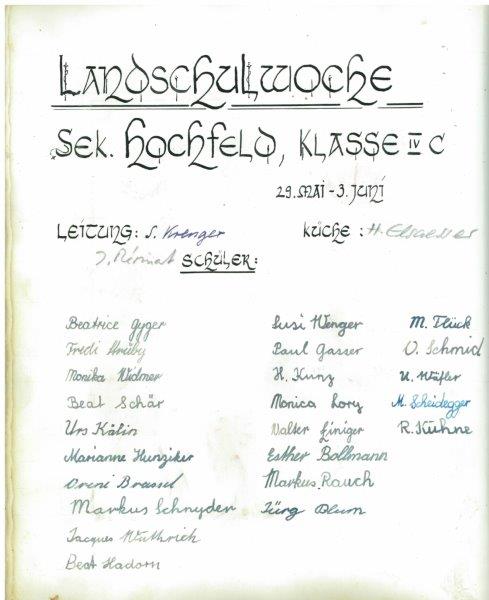 Landschulwoche
Sek. Hochfeld, Klasse IV C
29. Mai - 3. Juni
Leitung: S. Krenger
Küche: H. Elsaesser
Schüler:
Beatrice Gyger
Fredi Hruby
Monika Widmer
Beat Schär
Urs Kälin
Marianne Hunziker
Vreni Brassel
Markus Schnyder
Jacques Wüthrich
Beat Hadorn
Susi Wenger
Paul Gasser
H. Kunz
Monica Lory
Walter Einiger
Esther Bollmann
Markus Rauch
Jürg Blum
M. Flück
O. Schmid
U. Wäfler
M. Scheidegger
R. Kuhne